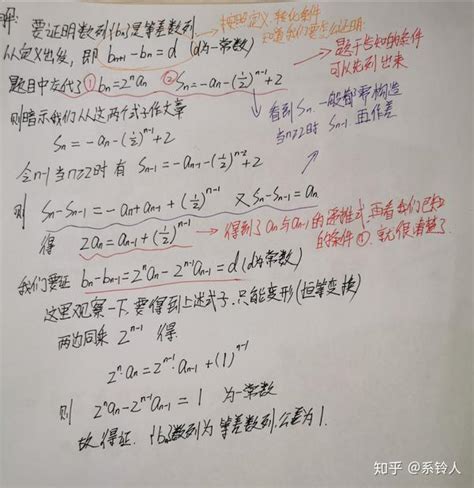 解: 要证明数列{bn}是等差数列
从定义出发, 即 bn+1-bn=d (d为一常数)
题目中交代了①bn=2ⁿan ②Sn=-an-(1/2)ⁿ⁻¹+2
题干告知的条件
可以先列出来
则暗示我们从这两个式子作文章
Sn=-an-(1/2)ⁿ⁻¹+2
看到Sn一般都要构造
当n≥2时 Sn-1 再作差
令n-1 当n≥2时 有 Sn-1=-an-1-(1/2)ⁿ⁻²+2
则 Sn-Sn-1=-an+an-1+(1/2)ⁿ⁻¹ 又Sn-Sn-1=an
得 2an=an-1+(1/2)ⁿ⁻¹
得到了an与an-1的递推式,再看我们已知
的条件①,就很清楚了
我们要证 bn-bn-1=2ⁿan-2ⁿ⁻¹an-1=d (d为常数)
这里观察一下,要得到上述式子,只能变形(恒等变换)
两边同乘 2ⁿ⁻¹ 得:
2ⁿ·an=2ⁿ⁻¹·an-1+(1)ⁿ⁻¹
则 2ⁿan-2ⁿ⁻¹an-1=1 为一常数
故得证. {bn}数列为等差数列.公差为1.
知乎 @系铃人